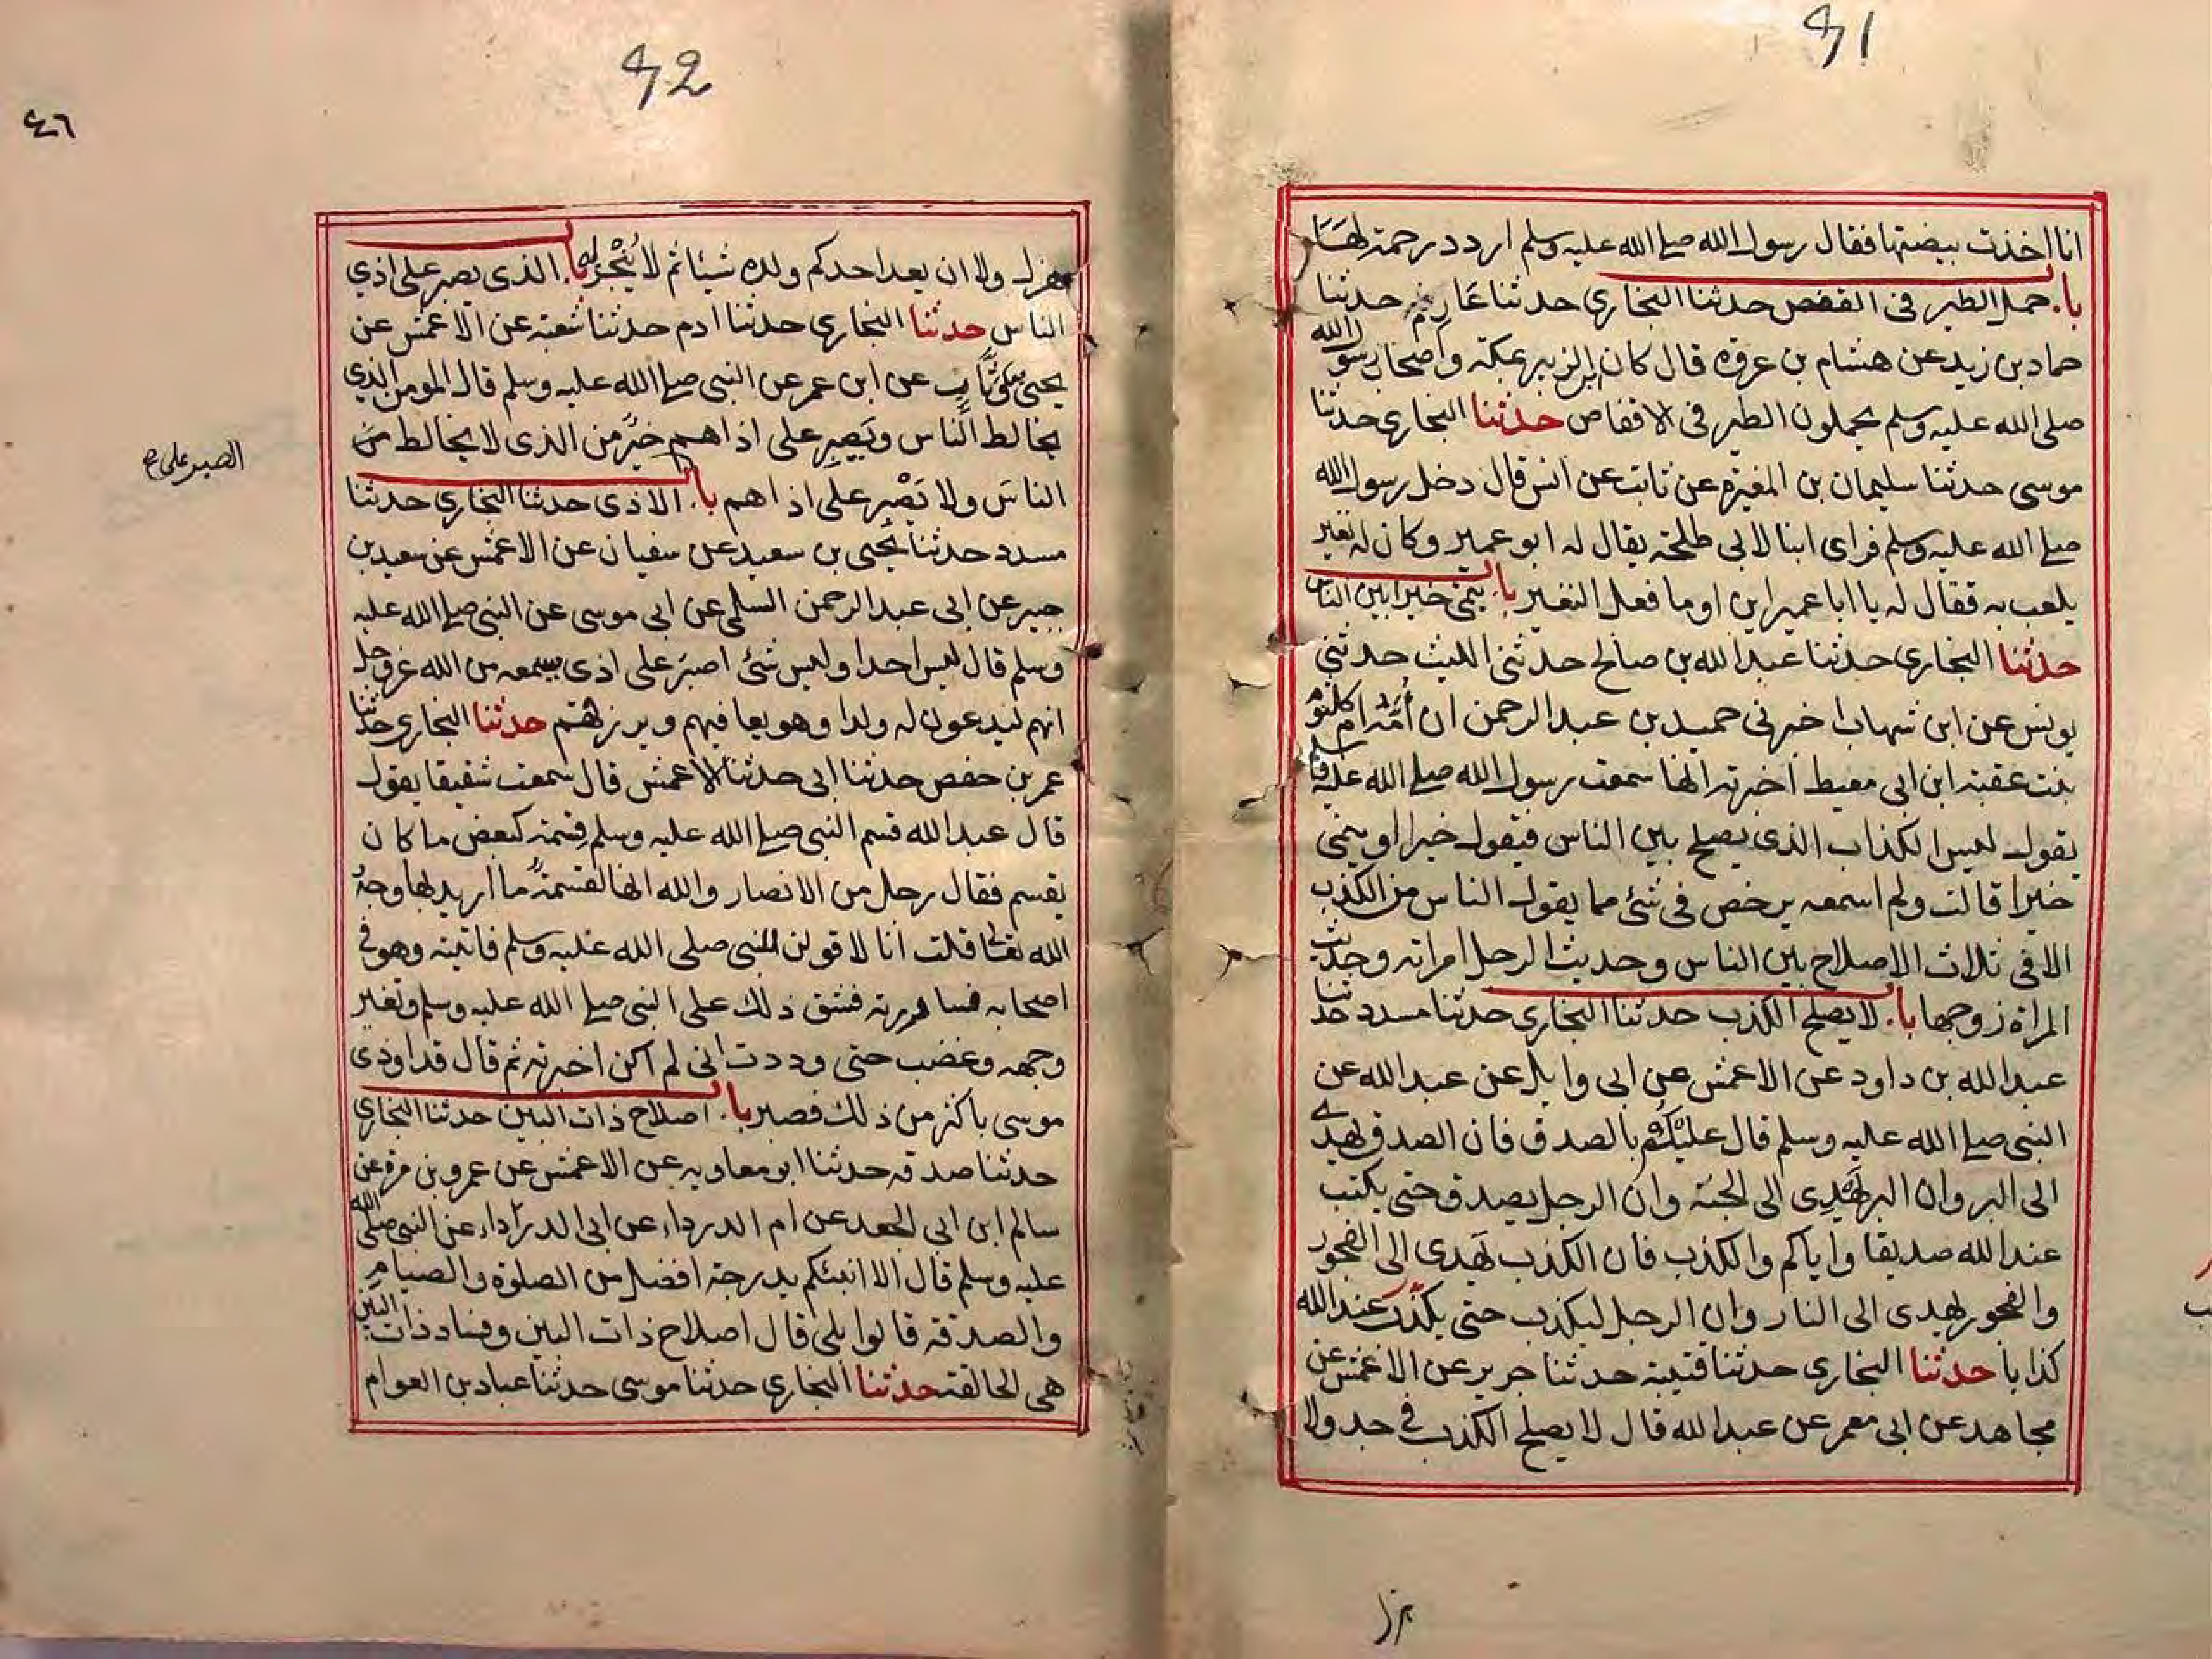 41
انا اخذت بيضتها فقال رسول الله صلى الله عليه وسلم اردد رحمة لها
باب حمل الطير في القفص حدثنا البخاري حدثنا عارم حدثنا
حماد بن زيد عن هشام بن عروة قال كان ابن الزبير بمكة واصحاب رسول الله
صلى الله عليه وسلم يحملون الطير في الاقفاص حدثنا البخاري حدثنا
موسى حدثنا سليمان بن المغيرة عن ثابت عن انس قال دخل رسول الله
صلى الله عليه وسلم فراى ابنا لابي طلحة يقال له ابو عمير وكان له نغير
يلعب به فقال له يا ابا عمير اين او ما فعل النغير باب ينمي خيرا بين الناس
حدثنا البخاري حدثنا عبد الله بن صالح حدثني الليث حدثني
يونس عن ابن شهاب اخبرني حميد بن عبد الرحمن ان أمه ام كلثوم
بنت عقبة ابن ابي معيط اخبرته انها سمعت رسول الله صلى الله عليه وسلم
يقول ليس الكذاب الذي يصلح بين الناس فيقول خيرا او ينمي
خيرا قالت ولم اسمعه يرخص في شئ مما يقول الناس من الكذب
الا في ثلاث الاصلاح بين الناس وحديث الرجل امراته وحديث
المراة زوجها باب لا يصلح الكذب حدثنا البخاري حدثنا مسدد حدثنا
عبد الله بن داود عن الاعمش عن ابي وايل عن عبد الله عن
النبي صلى الله عليه وسلم قال عليكم بالصدق فان الصدق يهدي
الى البر وان البر يهدي الى الجنة وان الرجل يصدق حتى يكتب
عند الله صديقا واياكم والكذب فان الكذب يهدي الى الفجور
والفجور يهدي الى النار وان الرجل ليكذب حتى يكتب عند الله
كذابا حدثنا البخاري حدثنا قتيبة حدثنا جرير عن الاعمش عن
مجاهد عن ابي معمر عن عبد الله قال لا يصلح الكذب في جد ولا
هزل
42
٤٦
هزل ولا ان يعد احدكم ولده شيئا ثم لا ينجز له باب الذي يصبر على اذي
الناس حدثنا البخاري حدثنا ادم حدثنا شعبة عن الاعمش عن
يحيى بن وثاب عن ابن عمر عن النبي صلى الله عليه وسلم قال المومن الذي
يخالط الناس ويصبر على اذاهم خير من الذي لا يخالط
الناس ولا يصبر على اذاهم باب الاذى حدثنا البخاري حدثنا
الصبر على ع
مسدد حدثنا يحيى بن سعيد عن سفيان عن الاعمش عن سعيد بن
جبير عن ابي عبد الرحمن السلمي عن ابي موسى عن النبي صلى الله عليه
وسلم قال ليس احد او ليس شئ اصبر على اذى يسمعه من الله عز وجل
انهم ليدعون له ولدا وهو يعافيهم ويرزقهم حدثنا البخاري حدثنا
عمر بن حفص حدثنا ابي حدثنا الاعمش قال سمعت شقيقا يقول
قال عبد الله قسم النبي صلى الله عليه وسلم قسمة كبعض ما كان
يقسم فقال رجل من الانصار والله انها لقسمة ما اريد بها وجه
الله تعالى قلت انا لاقولن للنبي صلى الله عليه وسلم فاتيته وهو في
اصحابه فساررته فشق ذلك على النبي صلى الله عليه وسلم وتغير
وجهه وغضب حتى وددت اني لم اكن اخبرته ثم قال قد اوذي
موسى باكثر من ذلك فصبر باب اصلاح ذات البين حدثنا البخاري
حدثنا صدقه حدثنا ابو معاويه عن الاعمش عن عمرو بن مرة عن
سالم ابن ابي الجعد عن ام الدرداء عن ابي الدرداء عن النبي صلى الله
عليه وسلم قال الا انبئكم بدرجة افضل من الصلوة والصيام
والصدقة قالوا بلى قال اصلاح ذات البين وفساد ذات البين
هي الحالقة حدثنا البخاري حدثنا موسى حدثنا عباد بن العوام